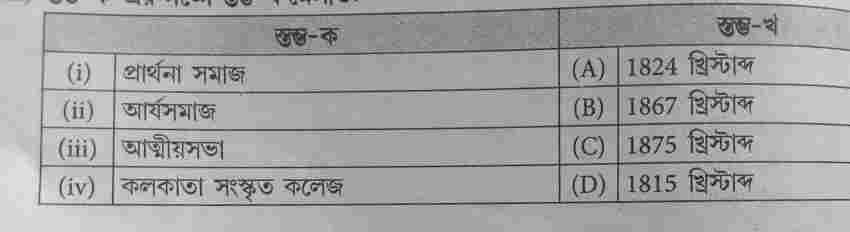 স্তম্ভ-ক স্তম্ভ-খ
(i) প্রার্থনা সমাজ (A) 1824 খ্রিস্টাব্দ
(ii) আর্যসমাজ (B) 1867 খ্রিস্টাব্দ
(iii) আত্মীয়সভা (C) 1875 খ্রিস্টাব্দ
(iv) কলকাতা সংস্কৃত কলেজ (D) 1815 খ্রিস্টাব্দ